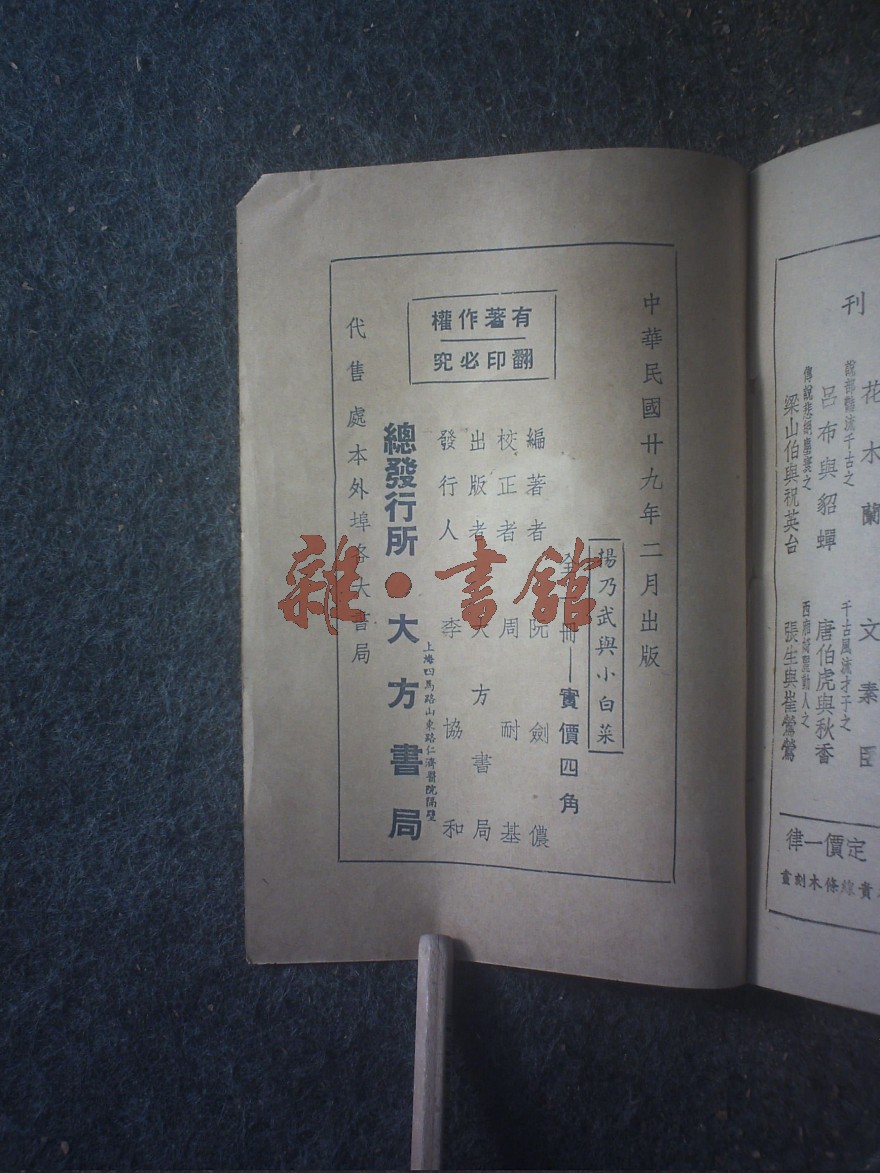 中華民國廿九年二月出版
楊乃武與小白菜
全一冊—實價四角
編著者 阮劍儂
校正者 周耐基
出版者 大方書局
發行人 李協和
有著作權
翻印必究
上海四馬路山東路仁濟醫院隔壁
總發行所 大方書局
代售處本外埠各大書局
雜·書館
花木蘭 文素臣
呂布與貂蟬
千古風流才子之
唐伯虎與秋香
梁山伯與祝英台
張生與崔鶯鶯
刊
定價一律